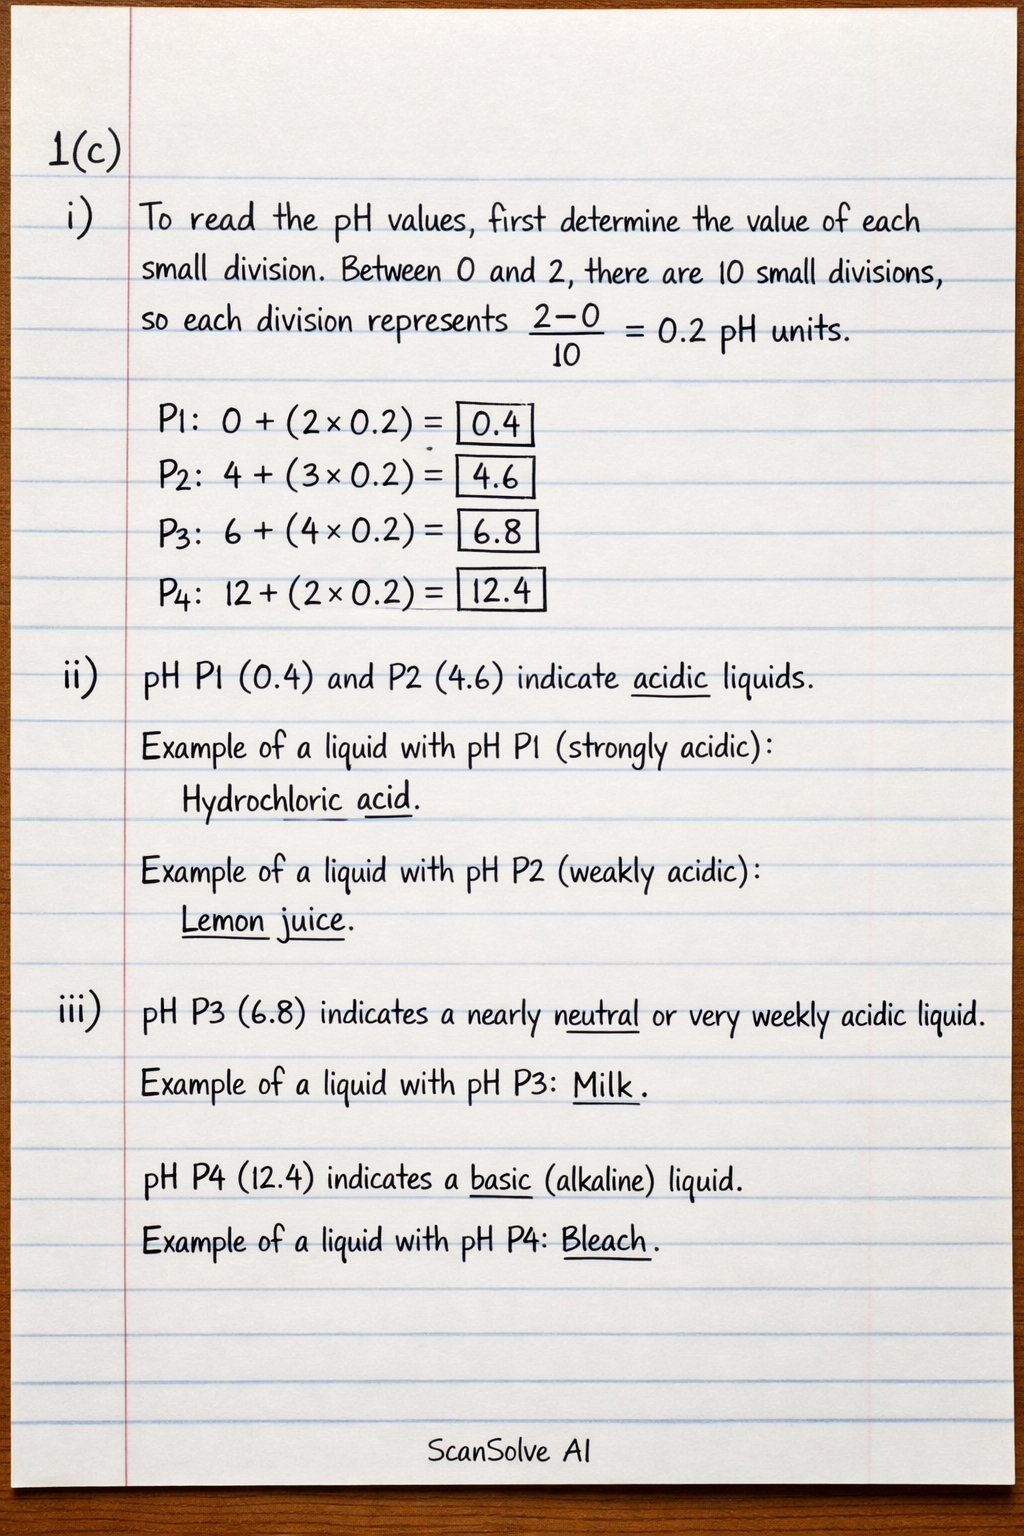 1(c)
i) To read the pH values, first determine the value of each
small division. Between 0 and 2, there are 10 small divisions,
so each division represents (2−0)/10 = 0.2 pH units.
P1: 0 + (2 × 0.2) = 0.4
P2: 4 + (3 × 0.2) = 4.6
P3: 6 + (4 × 0.2) = 6.8
P4: 12 + (2 × 0.2) = 12.4
ii) pH P1 (0.4) and P2 (4.6) indicate acidic liquids.
Example of a liquid with pH P1 (strongly acidic):
Hydrochloric acid.
Example of a liquid with pH P2 (weakly acidic):
Lemon juice.
iii) pH P3 (6.8) indicates a nearly neutral or very weekly acidic liquid.
Example of a liquid with pH P3: Milk.
pH P4 (12.4) indicates a basic (alkaline) liquid.
Example of a liquid with pH P4: Bleach.
ScanSolve AI